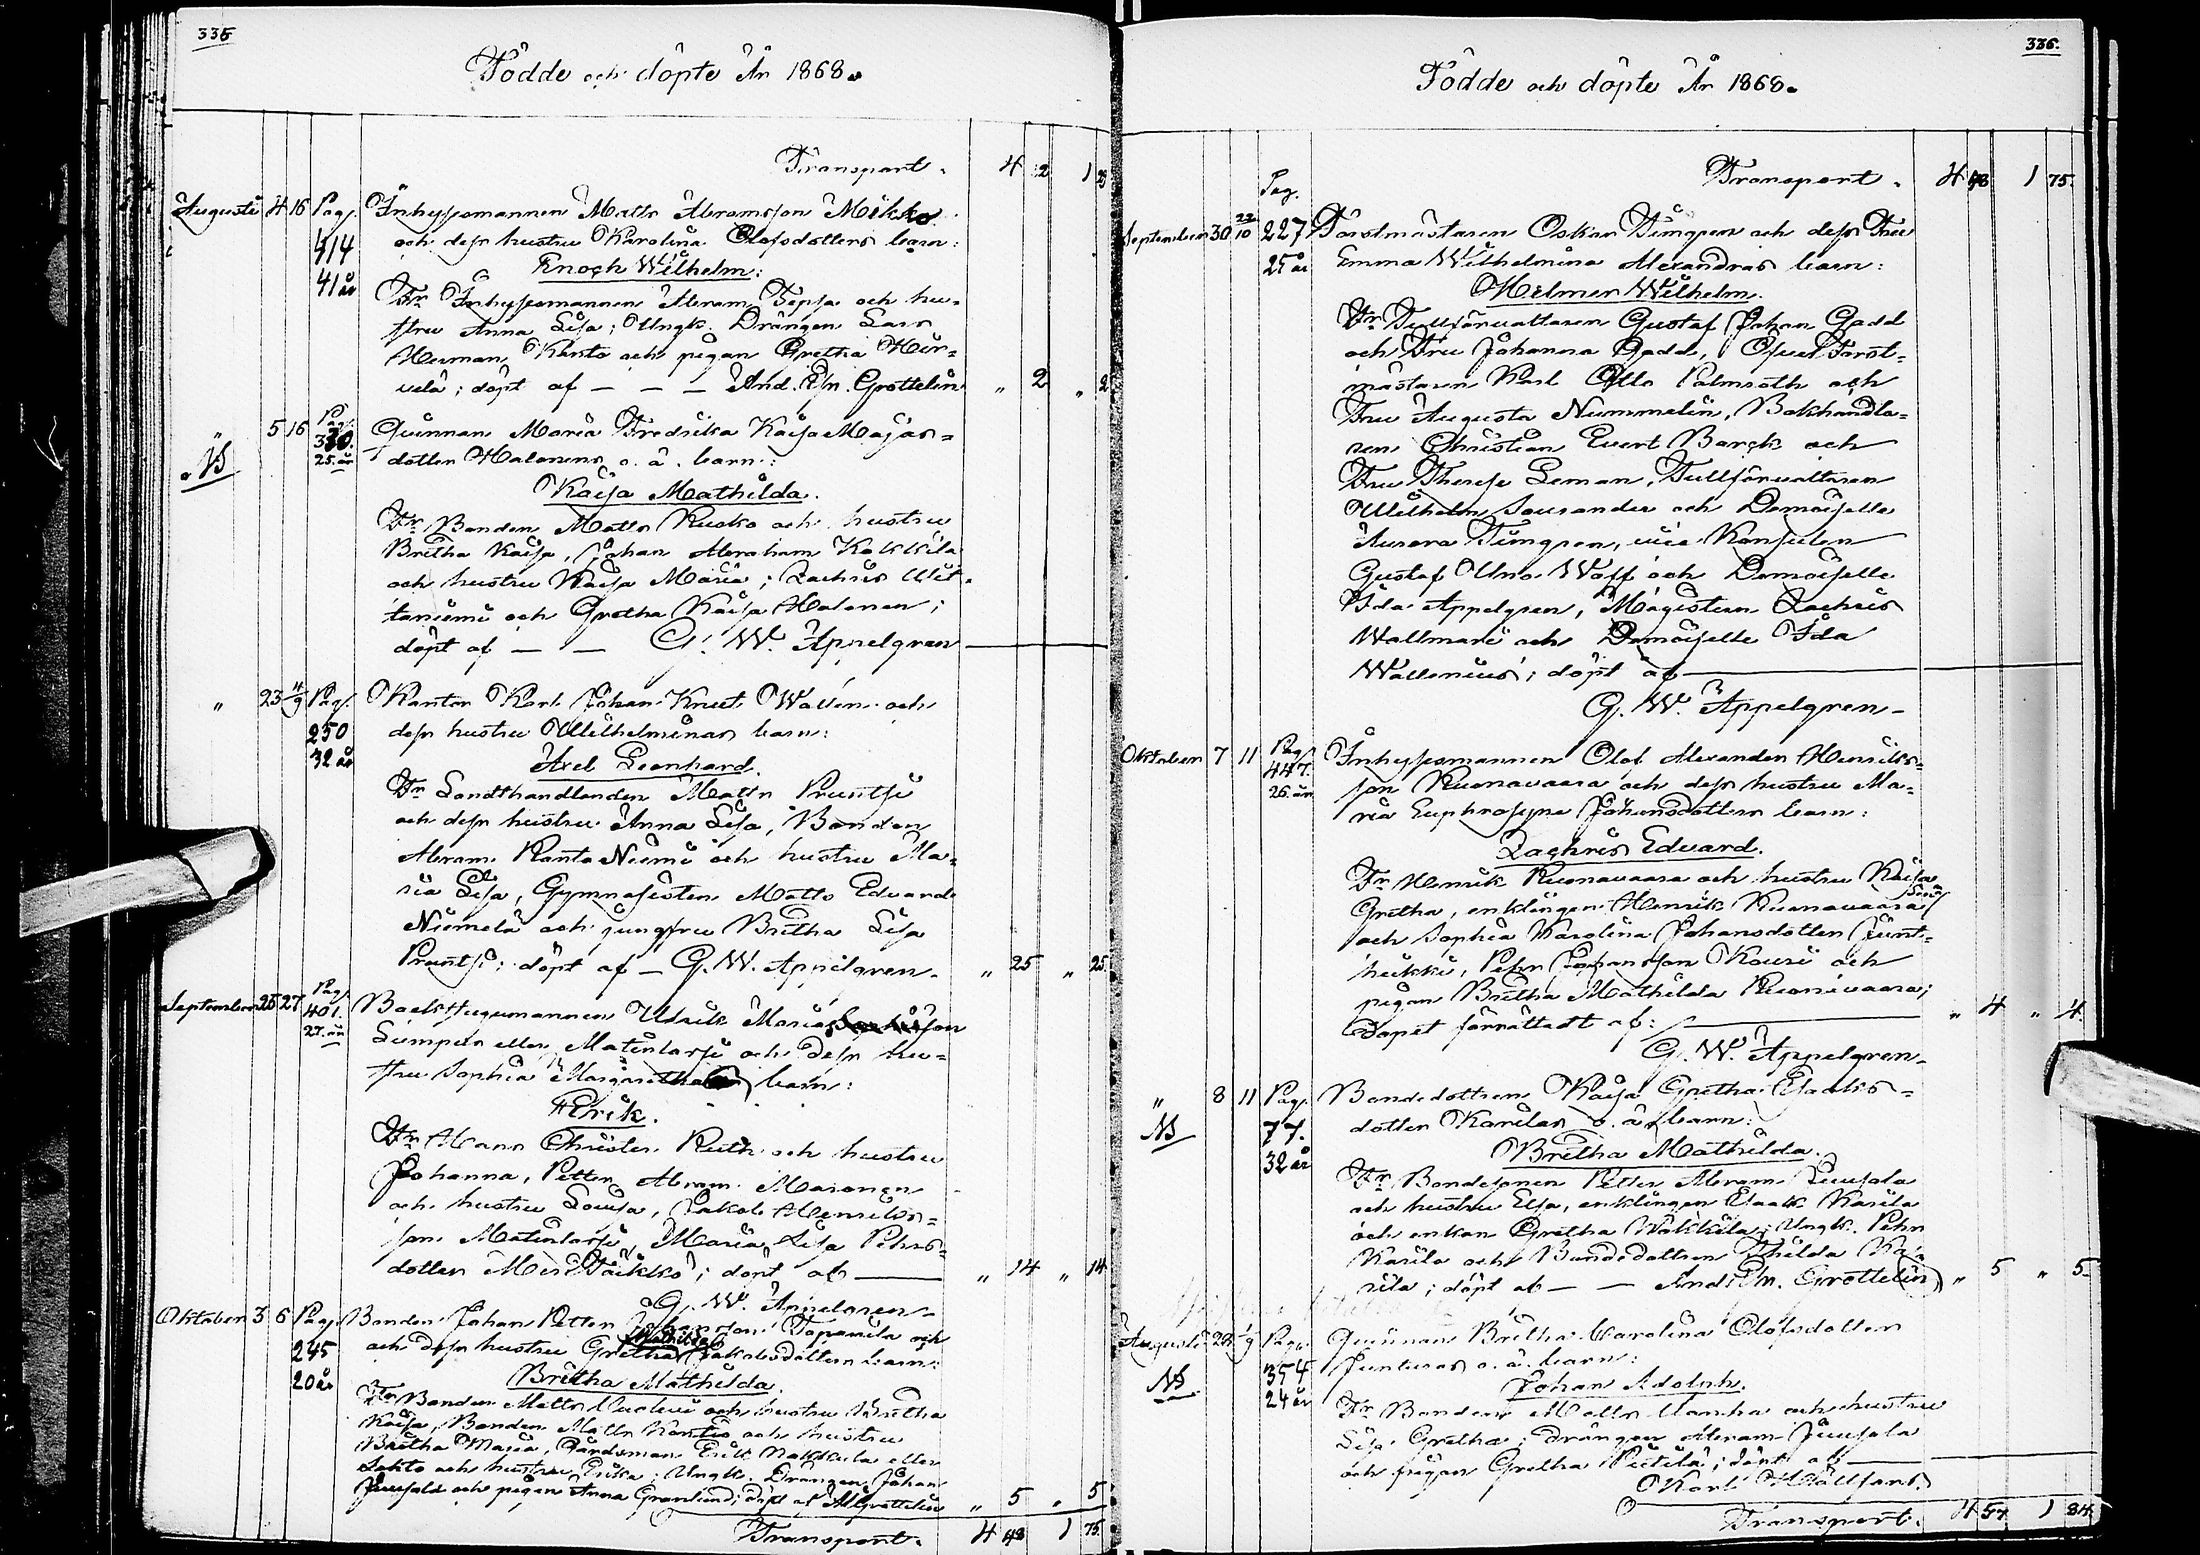 335
Födde och döpte År 1868.
Transport. 4 2 1 29
Augusti 4 16 Pag. Inhysesmannen Matts Abramsson Mikko
414 och dess hustru Karolina Olofsdotters barn:
41 år Enoch Wilhelm:
Fr Inhysesmannen Abram Seppä och hu-
stru Anna Lisa; Ungk. Drängen Lars
Herman Kanto och pigan Gretha Hir-
velä; döpt af — — — And. Joh. Grottelin „ 2 „ 2
„ 5 16 Pag. Qvinnan Maria Fredrika Kaisa Majas-
NB 330. 25. år dotter Halonens o. ä. barn:
Kaisa Mathilda.
Fr Bonden Matts Rusko och hustru
Britha Kaisa, Johan Abraham Kokkila
och hustru Kaisa Maria; Zachris Wii-
taniemi och Gretha Kaisa Halonen;
döpt af — — G. W. Appelgren
„ 23 4/9 Pag. Kantor Karl Johan Knut Wallin och
250 dess hustru Wilhelminas barn:
32 år Axel Leonhard.
Fr Landthandlanden Matts Pruntsi
och dess hustru Anna Lisa, Bonden
Abram Ranta Niemi och hustru Ma-
ria Lisa, Gymnasisten Matts Edvard
Niemelä och jungfru Britha Lisa
Pruntsi; döpt af — G. W. Appelgren. „ 25 „ 25.
September 25 27 Pag. 401. Backstugumannen Ulrik Mariasson
27. år Simpuri eller Matinlassi och dess hu-
stru Sophia Margaretha barn:
Erik.
Fr Hans Christer Ruth och hustru
Johanna, Petter Abram Maronen
och hustru Lovisa, Jakob Henriks-
son Matinlassi, Maria Lisa Pehrs-
dotter; döpt af — „ 14 „ 14
G. W. Appelgren.
Oktober 3 6 Pag. Bonden Johan Petter Johansson Tapanila och
245 och dess hustru Gretha Mathilda Jakobsdotters barn:
20 år Britha Mathilda.
Fr Bonden Matts och hustru Britha
Kaisa, Bonden Matts Kantio och hustru
Britha Maria, Gårdsman Erik Nokkula eller
Lohto och hustru Erika; Ungk. Drängen Johan
Juusola och pigan Anna Granlund; döpt af A. Grottelin „ 5 „ 5
Transport. 4 48 1 75.
336.
Födde och döpte År 1868.
Transport. 4 48 1 75.
Pag.
September 30 22/10 227 Forstmästaren Oskar Timgren och dess Fru
25 år Emma Wilhelmina Alexandras barn:
Hilmer Wilhelm.
Fr Tullförvaltaren Gustaf Johan Gadd
och Fru Johanna Gadd, Öfver Forst-
mästaren Karl Otto Palmroth och
Fru Augusta Nummelin, Bokhandla-
ren Christian Evert Barck och
Fru Therese Leman, Tullförvaltaren
Wilhelm Sourander och Demoiselle
Aurora Timgren, vice Konsulen
Gustaf Uno Wolff och Demoiselle
Ida Appelgren, Magistern Zachris
Wallmari och Demoiselle Ida
Wallenius; döpt af —
G. W. Appelgren.
Oktober 7 11 Pag. Inhysesmannen Olof Alexander Henriks-
447. son Ruonavaara och dess hustru Ma-
26. år ria Euphrosyne Johansdotters barn:
Zachris Edvard.
Fr Henrik Ruonavaara och hustru Kaisa
Gretha, enklingen Henrik Ruonavaara
och Sophia Karolina Johansdotter Junt-
hikki, Pehr Johansson Kouri och
pigan Britha Mathilda Ruonivaara;
Dopet förrättadt af: — „ 4 „ 4.
G. W. Appelgren.
„ 8 11 Pag. Bondedottren Kaisa Gretha Esaks-
NB 77. dotter Karilas o. ä. barn:
32 år Britha Mathilda.
Fr Bondesonen Petter Abram Juusola
och hustru Elsa, enklingen Esaak Karila
och enkan Gretha Wäkkilä; Ungk. Pehr
Karila och Bondedottren Thilda Ka-
rila; döpt af — — And. Joh. Grottelin „ 5 „ 5.
Augusti 28 1/9 Pag. Qvinnan Britha Carolina Olofsdotter
NB 354 Junturas o. ä. barn:
24 år Johan Adolph.
Fr Bonden Matts Vanha och hustru
Lisa Gretha; drängen Abram Juusola
och pigan Gretha Pietilä; döpt af —
Karl Hällfors.
Transport. 4 57 1 84.